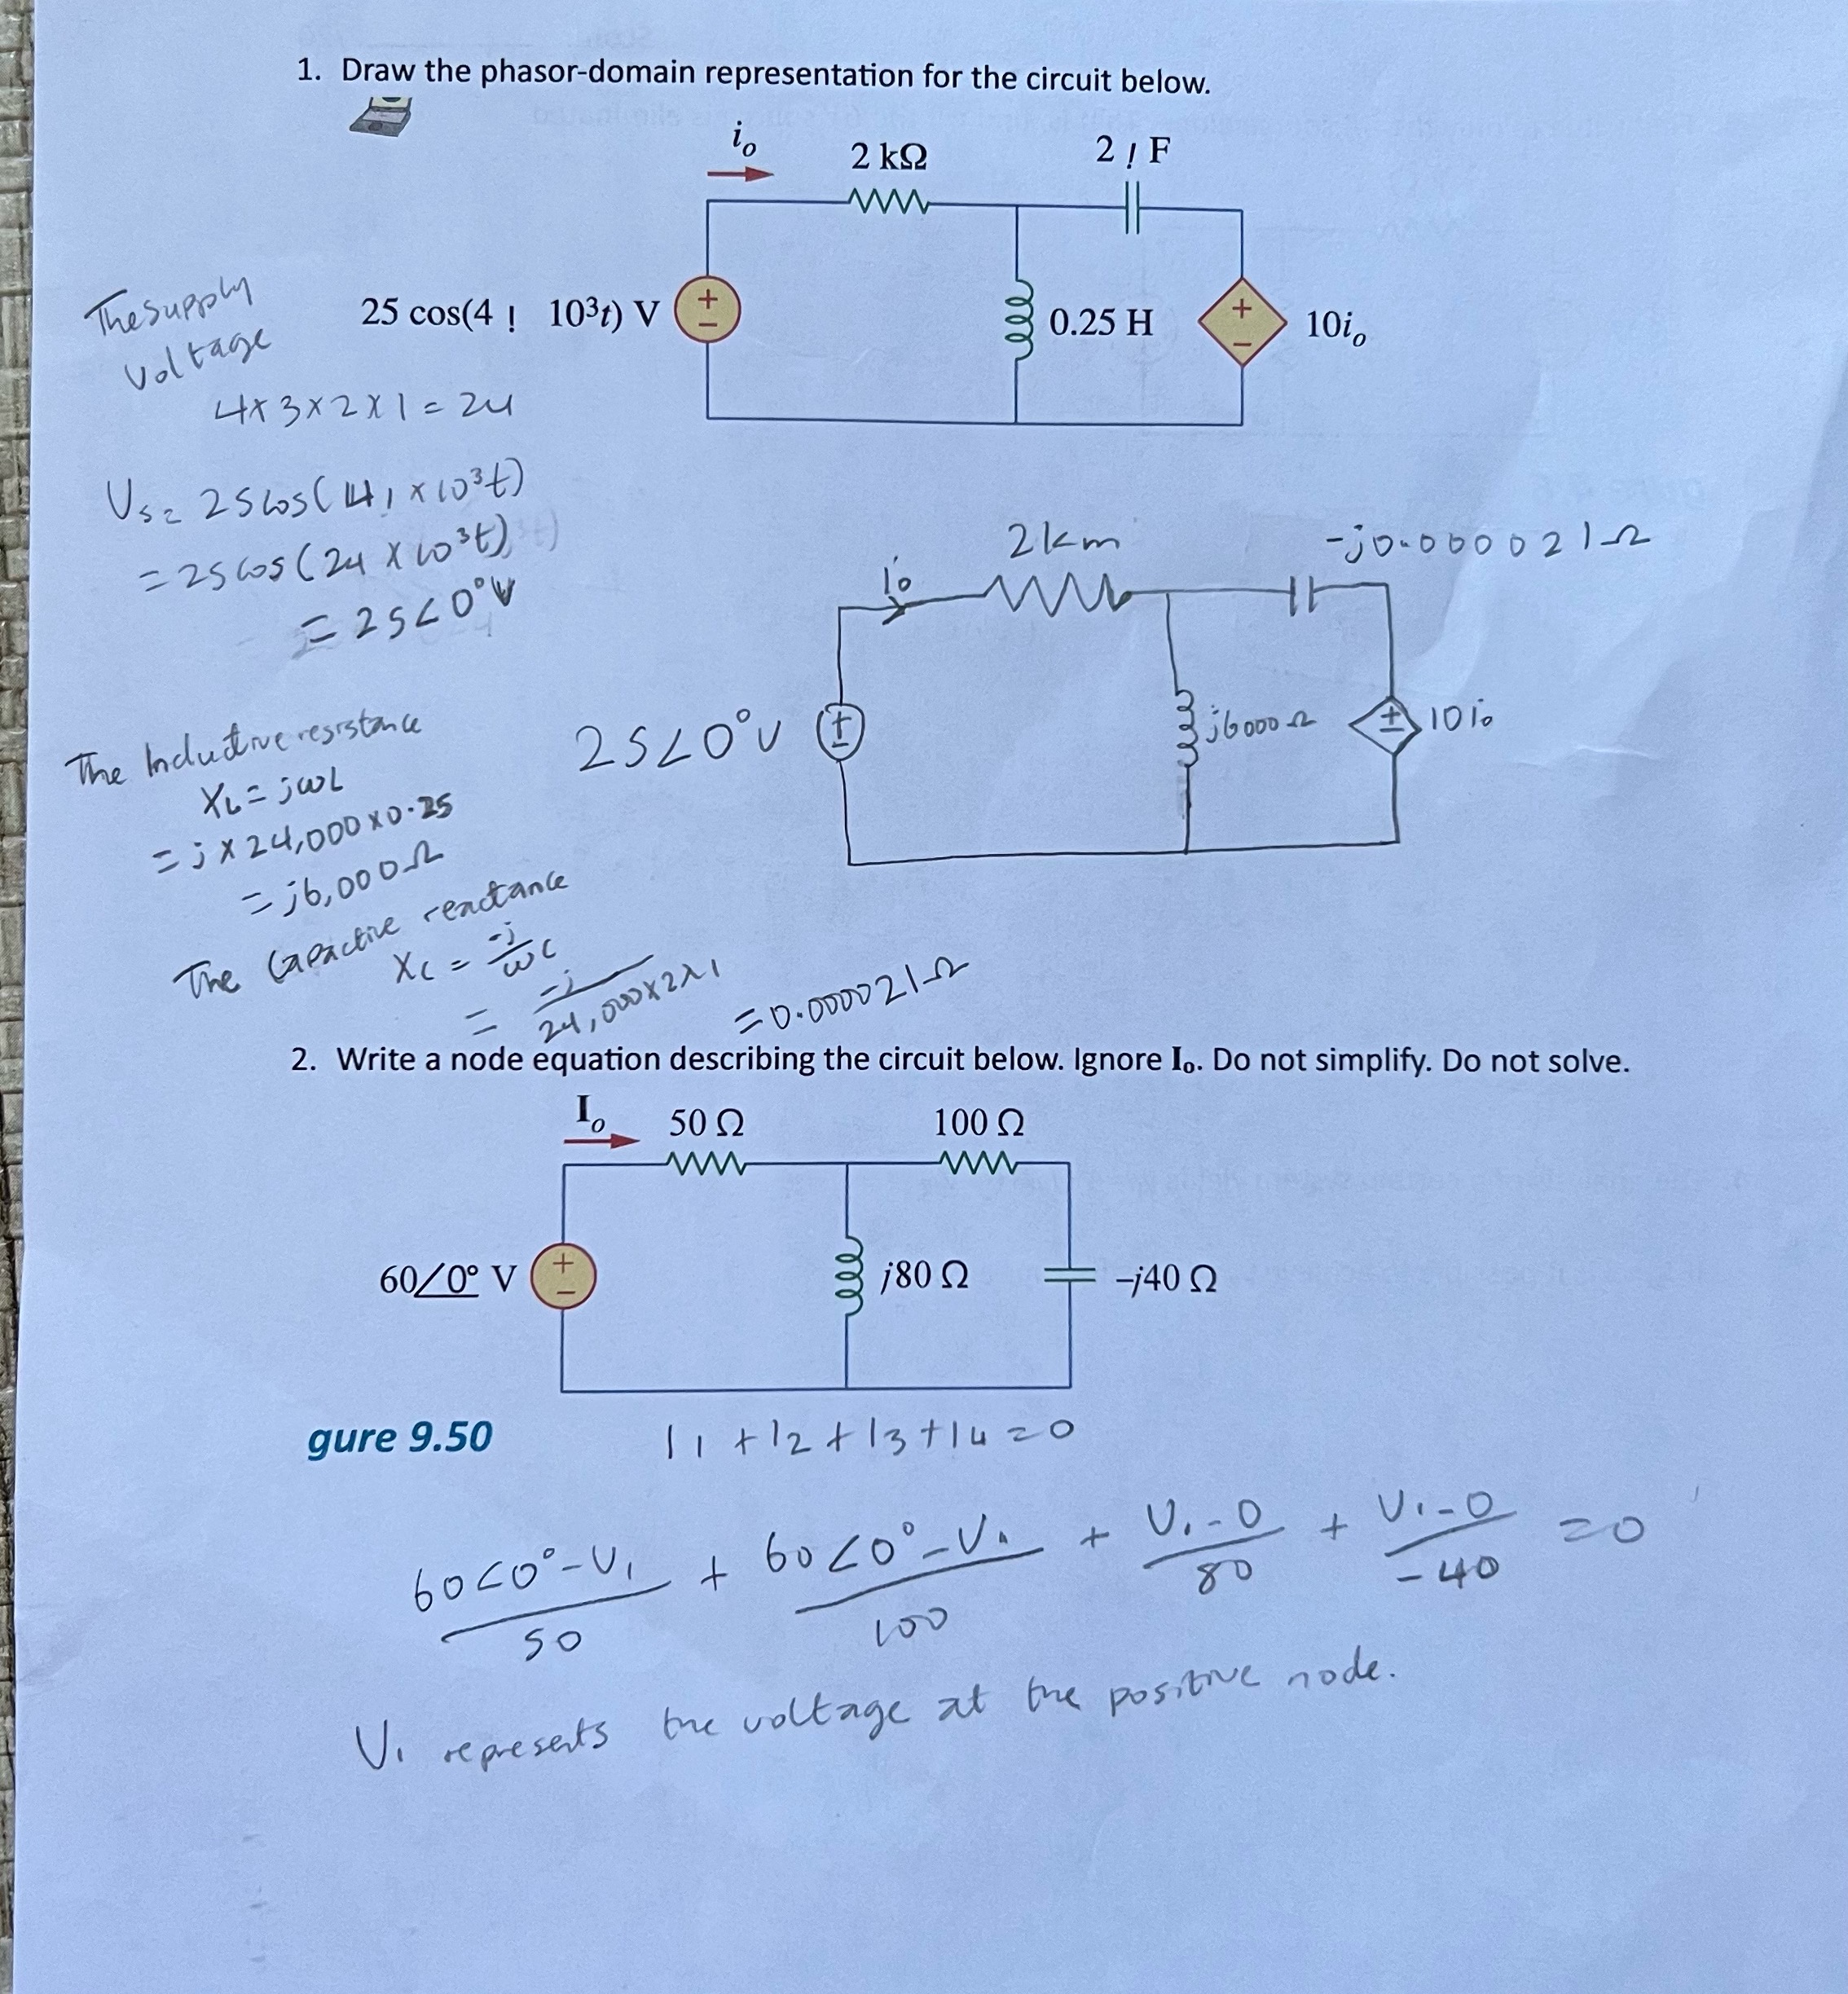 1. Draw the phasor-domain representation for the circuit below.
i₀
2 kΩ
2 ! F
25 cos(4 ! 10³t) V
+
−
0.25 H
+
−
10i₀
The supply
voltage
4×3×2×1=24
Vs= 25cos(4! ×10³t)
=25cos(24×10³t)
=25∠0°V
i₀
2km
-j0.0000021Ω
25∠0°V
+
-
j6000Ω
+
-
10i₀
The Inductive resistance
XL=jωL
=j×24,000×0.25
=j6,000Ω
The Capactive reactance
Xc = -j/ωC
= -j/24,000×2×1
=0.000021Ω
2. Write a node equation describing the circuit below. Ignore I₀. Do not simplify. Do not solve.
I₀
50 Ω
100 Ω
60∠0° V
+
−
j80 Ω
−j40 Ω
gure 9.50
I1+I2+I3+I4=0
60∠0°-V₁/50 + 60∠0°-V₁/100 + V₁-0/80 + V₁-0/-40 =0
V₁ represents the voltage at the positive node.